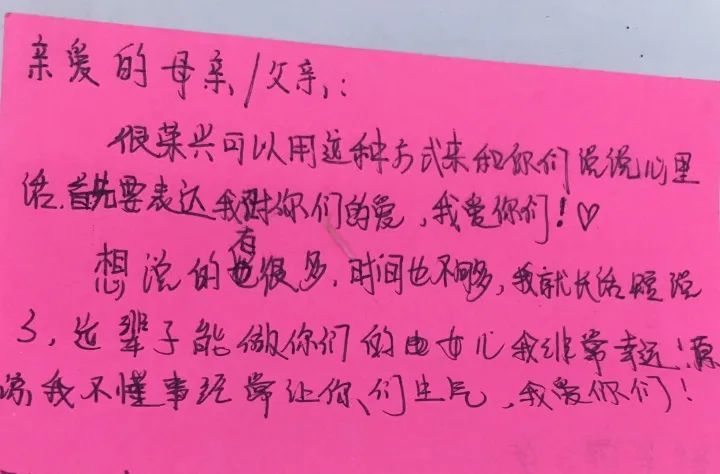 亲爱的母亲/父亲:
很荣兴可以用这种方式来和你们说说心里
话.首先要表达我对你们的爱,我爱你们!♡
想说的有很多.时间也不够多,我就长话短说
了,这辈子能做你们的女儿我非常幸运!原
谅我不懂事经常让你们生气,我爱你们!